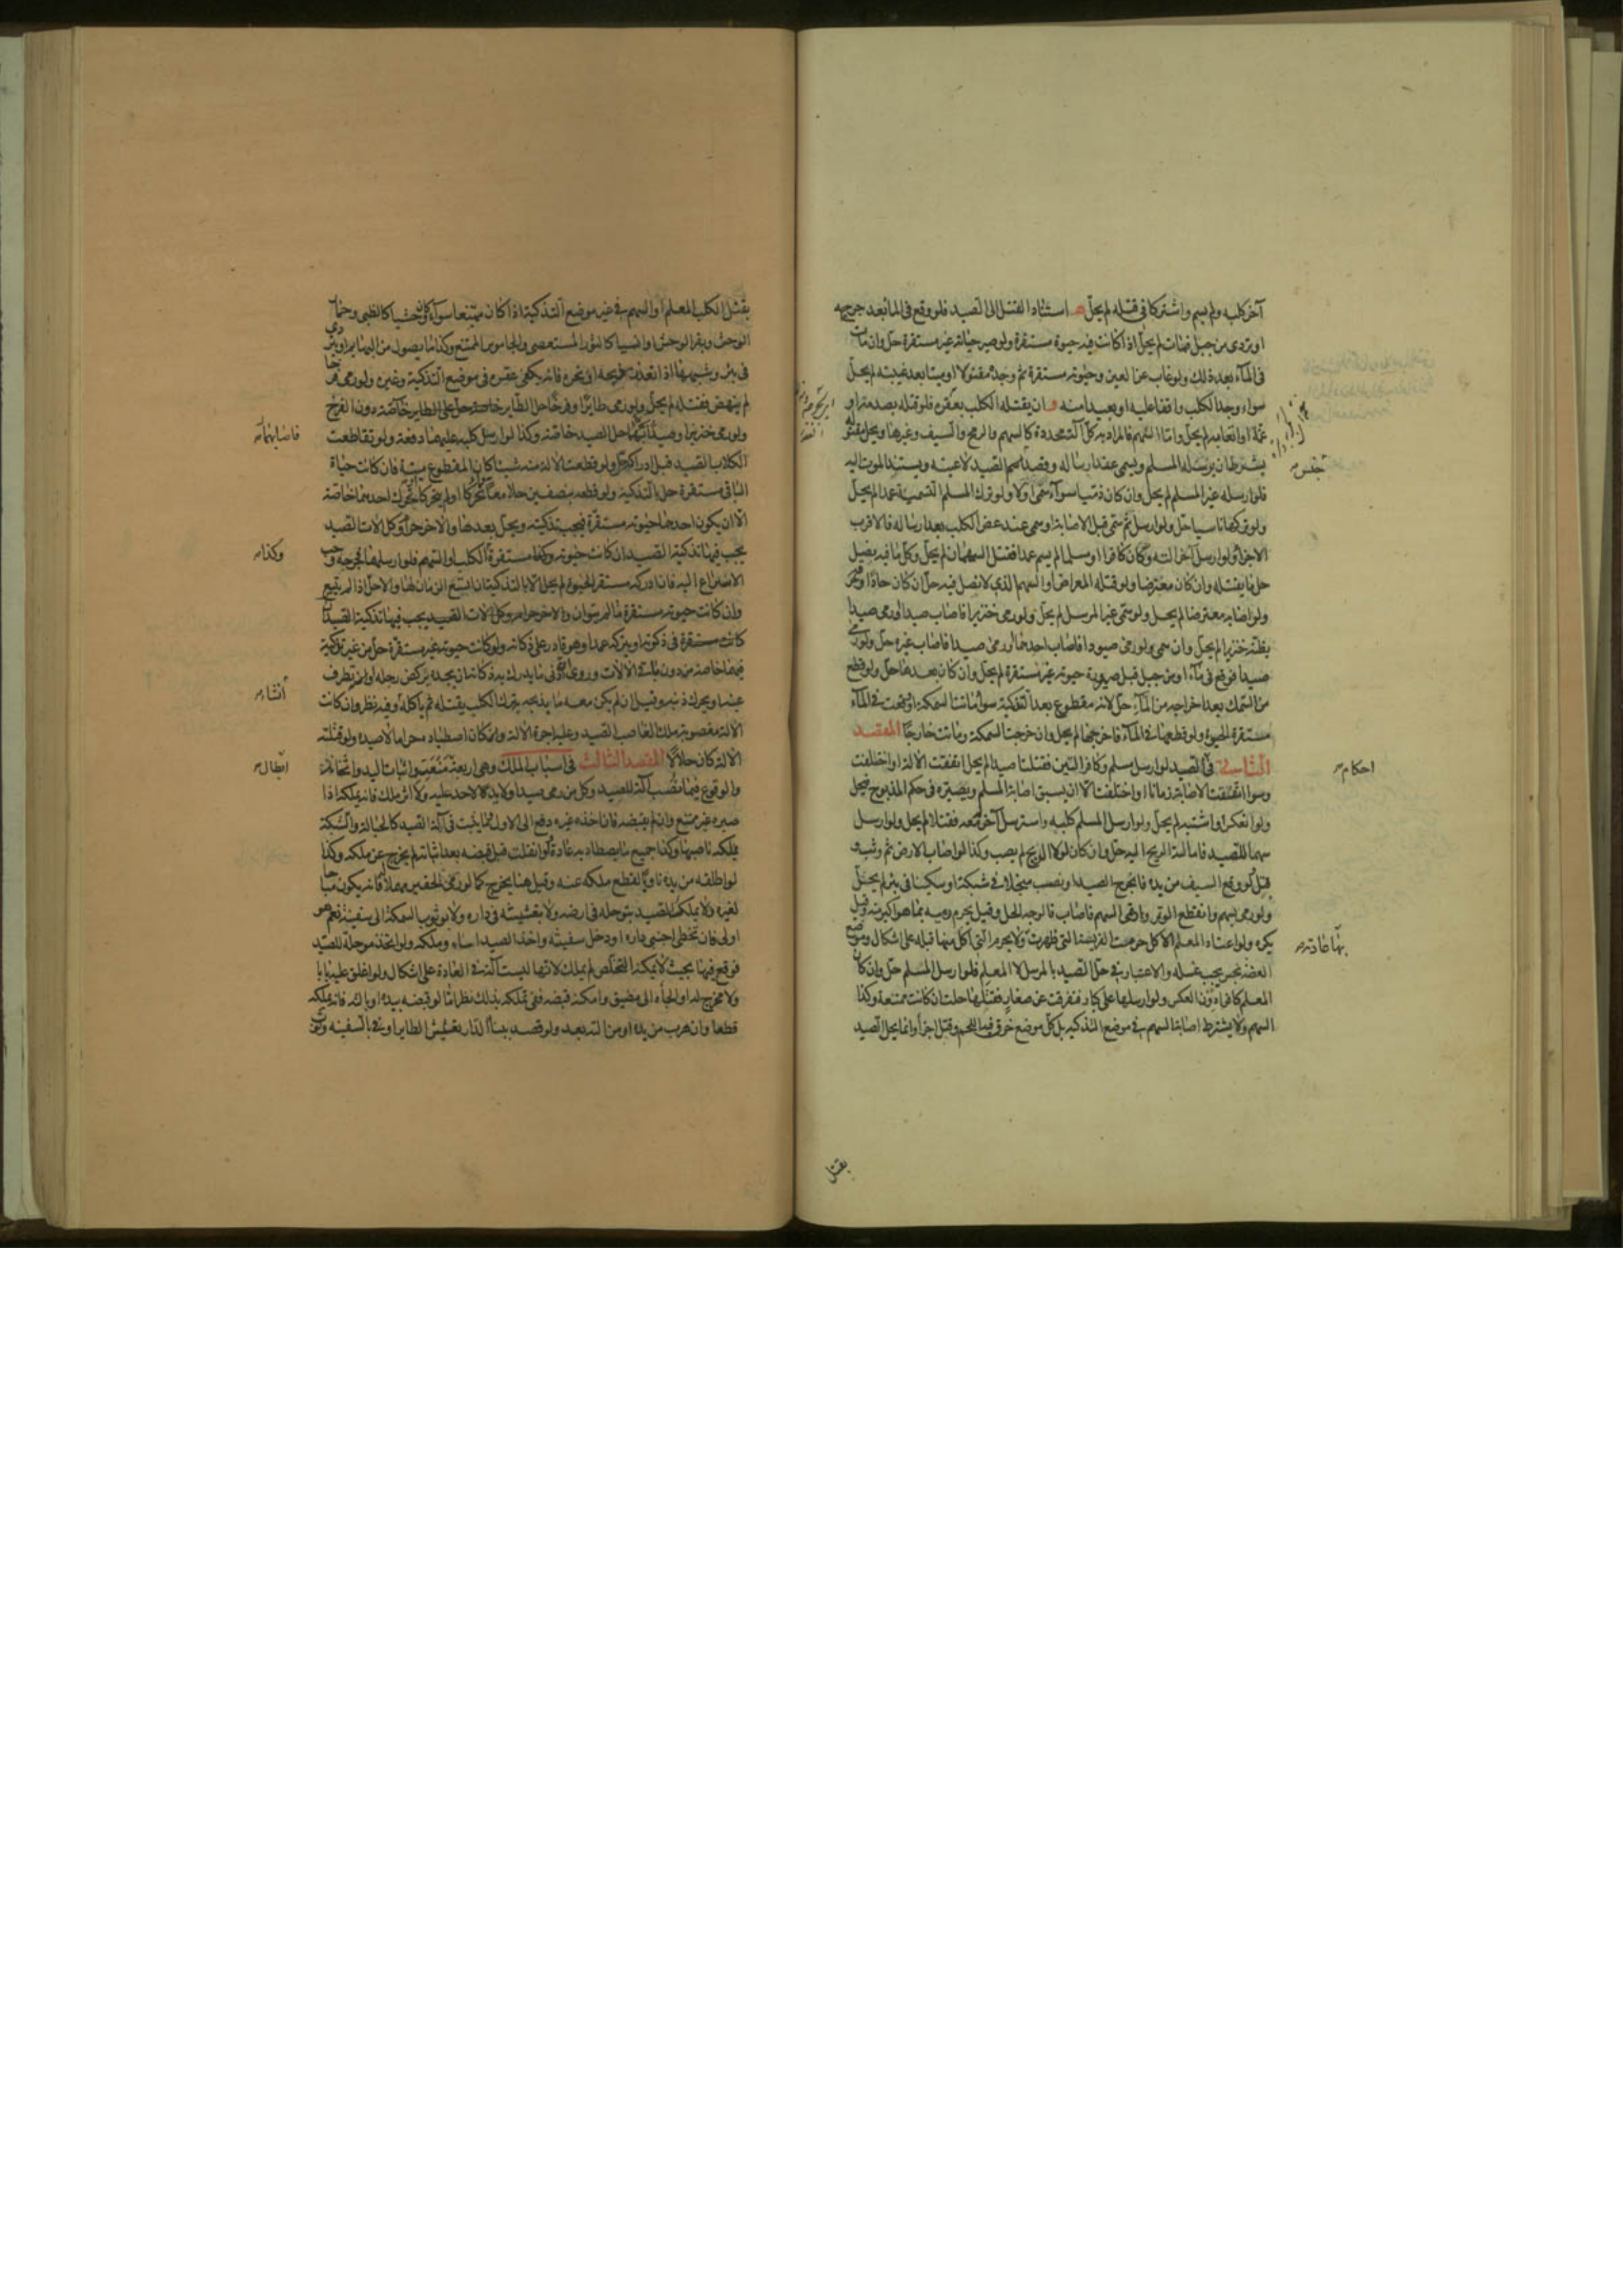 آخر كلبه ولم يسم واشتركا في قتله لم يحل ه استناد القتل الى الصيد فلو وقع في الماء بعد جرحه
او تردى من جبل فمات لم يحل اذا كانت فيه حيوة مستقرة ولو صير حياته غير مستقرة حل وان مات
في الماء بعد ذلك ولو غاب عن العين وحيوته مستقرة ثم وجده مقتولا او ميتا بعد غيبته لم يحل
سواء وجد الكلب واقفا عليه او بعيدا منه و ان يقتله الكلب بعقره فلو قتله بصدمه او
غمه او اتعابه لم يحل واما السهم فالمراد به كل آلة محددة كالسهم والرمح والسيف وغيرها ويحل مقتوله
بشرط ان يرسله المسلم ويسمى عند ارساله وقصد جنس الصيد لا عينه ويستند الموت اليه
فلو ارسله غير المسلم لم يحل وان كان ذميا سواء سمى اولا ولو ترك المسلم التسمية عمدا لم يحل
ولو تركها ناسيا حل ولو ارسل ثم سمى قبل الاصابة او سمى عند عض الكلب بعد ارساله فالاقرب
الاجزاء ولو ارسل آخر آلته وكان كافرا او مسلما لم يسم عمدا فقتل السهمان لم يحل وكل ما فيه نصل
حل ما يقتله وان كان معترضا ولو قتله المعراض او السهم الذي لا نصل فيه حل ان كان حادا وخرق
ولو اصابه معترضا لم يحل ولو سمى غير المرسل لم يحل ولو رمى خنزيرا فاصاب صيدا او رمى صيدا
يظنه خنزيرا لم يحل وان سمى ولو رمى صيود فاصاب احدها او رمى صيدا فاصاب غيره حل ولو رمى
صيدا فوقع في ماء او من جبل قبل صيرورة حيوته غير مستقرة لم يحل وان كان بعدها حل ولو قطع
من السمك بعد اخراجه من الماء حل لانه مقطوع بعد التذكية سواء ماتت السمكة او وقعت في الماء
مستقرة الحيوة ولو قطعها في الماء فاخرجها لم يحل وان خرجت السمكة وماتت خارجا المقصد
الثاني في احكام الصيد لو ارسل مسلم وكافر آلتين فقتلتا صيدا لم يحل اتفقت الآلة او اختلفت
وسواء اتفقت الاصابة زمانا او اختلفت الا ان يسبق اصابة المسلم ويصيره في حكم المذبوح فيحل
ولو انعكس او اشتبه لم يحل ولو ارسل المسلم كلبه واسترسل آخر معه فقتلا لم يحل ولو ارسل
سهما للصيد فامالته الريح اليه حل وان كان لولا الريح لم يصب وكذا لو اصاب الارض ثم وثب و
قتل ولو وقع السيف من يده فانجرح الصيد او نصب منجلا في شبكة او سكينا في بئر لم يحل
ولو رمى بسهم وانقطع الوتر وارتمى السهم فاصاب فالوجه الحل وقيل يحرم رميه بما هو اكبر منه وقيل
يكره ولو اعتاد المعلم الاكل حرمت الفريسة التي ظهرت بها عادته ولا يحرم التي اكل منها قبله على اشكال وموضع
العضة نجس يجب غسله والاعتبار في حل الصيد بالمرسل لا المعلم فلو ارسل المسلم حل وان كان
المعلم كافرا دون العكس ولو ارسلها على كبار فتفرقت عن صغار فقتلها حلت ان كانت ممتنعة وكذا
السهم ولا يشترط اصابة السهم في موضع التذكية بل كل موضع خرق فيه اللحم وقتل اجزأ وانما يحل الصيد
جنس
احكام
بها عادته
بقتل
بقتل الكلب المعلم او السهم في غير موضع التذكية اذا كان ممتنعا سواء كان وحشيا كالظبى وحمار
الوحش وبقر الوحش او انسيا كالثور المستعصى والجاموس الممتنع وكذا ما يصول من البهايم او يتردى
في بئر وشبهها اذا تعذر ذبحه او نحره فانه يكفى عقره في موضع التذكية وغيره ولو رمى فرخا
لم ينهض فقتله لم يحل ولو رمى طائرا وفرخا حل الطاير خاصة دون الفرخ
ولو رمى خنزيرا وصيدا فاصابهما حل الصيد خاصة وكذا لو ارسل كلبه عليهما دفعة ولو تقاطعت
الكلاب الصيد قبل ادراكه حل ولو قطعت الآلة منه شيئا كان المقطوع ميتة فان كانت حياة
الباقي مستقرة حل بالتذكية ولو قطعه بنصفين حلا معا تحركا او لم يتحركا او تحرك احدهما خاصة
الا ان يكون احدهما حيوته مستقرة فيجب تذكيته ويحل بعدها والآخر حرام وكل الات الصيد
يجب فيها تذكية الصيد ان كانت حيوته مستقرة وكذا الكلب او السهم فلو ارسلهما فجرحه وجب
الاسراع اليه فان ادركه مستقر الحيوة لم يحل الا بالتذكية ان اتسع الزمان لها والا حل اذا لم يتسع
وان كانت حيوته مستقرة ما لم يتوان والا حرم وكل الات الصيد يجب فيها تذكية الصيد ان
كانت مستقرة في ذكوته او يتركه عمدا وهو قادر على ذكاته ولو كانت حيوته غير مستقرة حل من غير تذكية
فيهما خاصة من دون باقي الالات وروى ان ادنى ما يدرك به ذكاته ان يجده يركض رجله او يطرف
عينه او يحرك ذنبه وقيل ان لم يكن معه ما يذبحه يترك الكلب يقتله ثم ياكله وفيه نظر وان كانت
الآلة مغصوبة ملك الغاصب الصيد وعليه اجرة الآلة وان كان اصطياد محرما لا صيده ولو قتلته
الآلة كان حلالا المقصد الثالث في اسباب الملك وهي اربعة اثبات اليد واثخانه
والوقوع فيما نصب آلة للصيد وكل من رمى صيدا ولا يد لاحد عليه ولا اثر ملك فانه يملكه اذا
صيره غير ممتنع وان لم يقبضه فان اخذه غيره دفع الى الاول وما يثبت في آلة الصيد كالحبالة والشبكة
يملكه ناصبها وكذا جميع ما يصطاد به عادة ولو انفلت قبل قبضه بعد اثباته لم يخرج عن ملكه وكذا
لو اطلقه من يده ناويا لقطع ملكه عنه وقيل هنا يخرج كما لو رمى الحقير مهملا فانه يكون مباحا
لغيره ولا يملك الصيد بتوحله في ارضه ولا بتعشيشه في داره ولا بوثوب السمكة الى سفينة نعم هو
اولى فان تخطى اجنبي داره او دخل سفينته واخذ الصيد اساء وملكه ولو اتخذ موحلة للصيد
فوقع فيها بحيث لا يمكنه التخلص لم يملك لانها ليست آلة في العادة على اشكال ولو اغلق عليه بابا
ولا مخرج له او الجأه الى مضيق وامكنه قبضه ففي تملكه بذلك نظر اما لو قبضه بيده او بآلة فانه يملكه
قطعا وان هرب من يده او من آلته بعد ولو قصد ببناء الدار تعشيش الطاير او بالسفينة وثوب
فاصابهما
وكذا
انشاء
ابطال